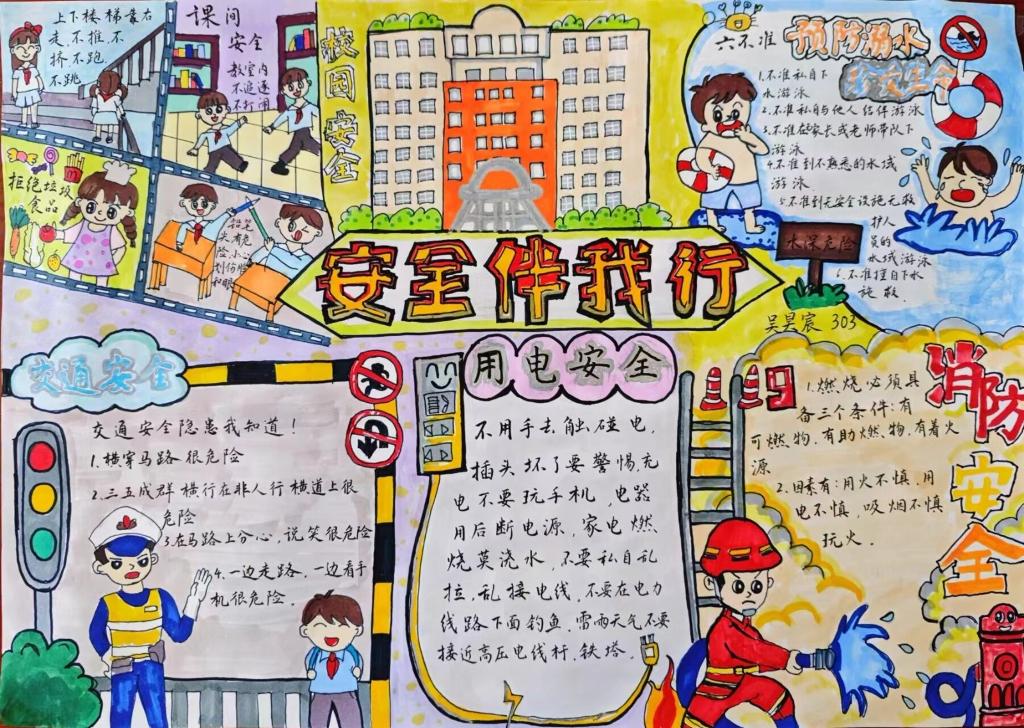 上下楼梯靠右
走,不推,不
挤不跑,
不跳
课间
安全
教室内
不追逐
不打闹
校园安全
拒绝垃圾
食品
铅笔
有危
险,小心
划伤脸
和眼
安全伴我行
吴昊宸 303
六不准
预防溺水
珍爱生命
1.不准私自下
水游泳
2.不准私自与他人结伴游泳
3.不准在家长或老师带队下
游泳
4.不准到不熟悉的水域
游泳.
5.不准到无安全设施无救
护人
员的
水域游泳
6.不准擅自下水
施救.
水深危险
交通安全
交通安全隐患我知道!
1.横穿马路很危险
2.三五成群横行在非人行横道上很
危险
3.在马路上分心,说笑很危险
4.一边走路,一边看手
机很危险.
用电安全
不用手去触碰电,
插头坏了要警惕,充
电不要玩手机,电器
用后断电源,家电燃
烧莫浇水,不要私自乱
拉,乱接电线,不要在电力
线路下面钓鱼.雷雨天气不要
接近高压电线杆,铁塔.
119
消防安全
1.燃烧必须具
备三个条件:有
可燃物,有助燃物,有着火
源
2.因素有:用火不慎,用
电不慎,吸烟不慎
玩火.